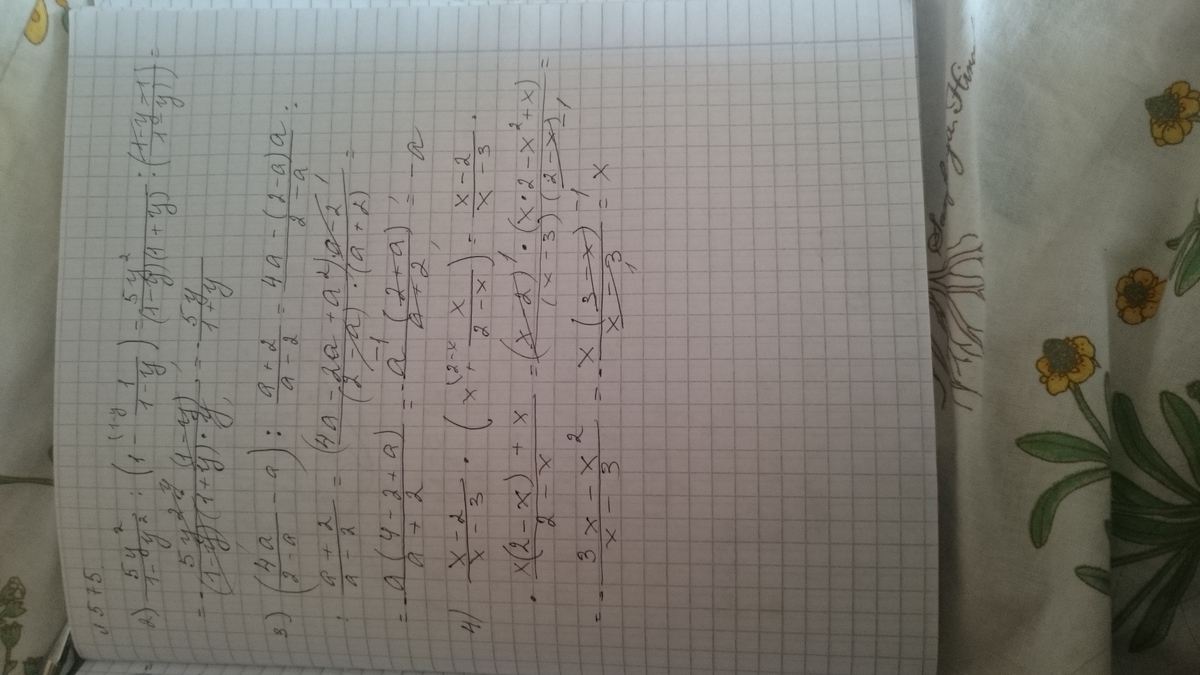 575
2) 5y²/(1-y²) : (1 - 1/(1-y)) = 5y²/((1-y)(1+y)) : ((1-y-1)/(1-y)) =
= - 5y² (1-y)/((1-y)(1+y)·y) = - 5y/(1+y)
3) (4a/(2-a) - a) : (a+2)/(a-2) = (4a-(2-a)a)/(2-a) :
: (a+2)/(a-2) = (4a-2a+a²)(a-2)/((2-a)·(a+2)) =
= - a(4-2+a)/(a+2) = - a(2+a)/(a+2) = -a
4) (x-2)/(x-3) · (x + x/(2-x)) = (x-2)/(x-3) ·
· (x(2-x)+x)/(2-x) = (x-2)·(x·2-x²+x)/((x-3)(2-x)) =
= - (3x-x²)/(x-3) = - x(3-x)/(x-3) = x